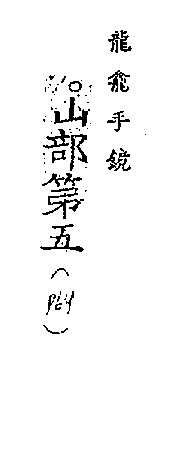 龍龕手鏡
山部第五
(P64)